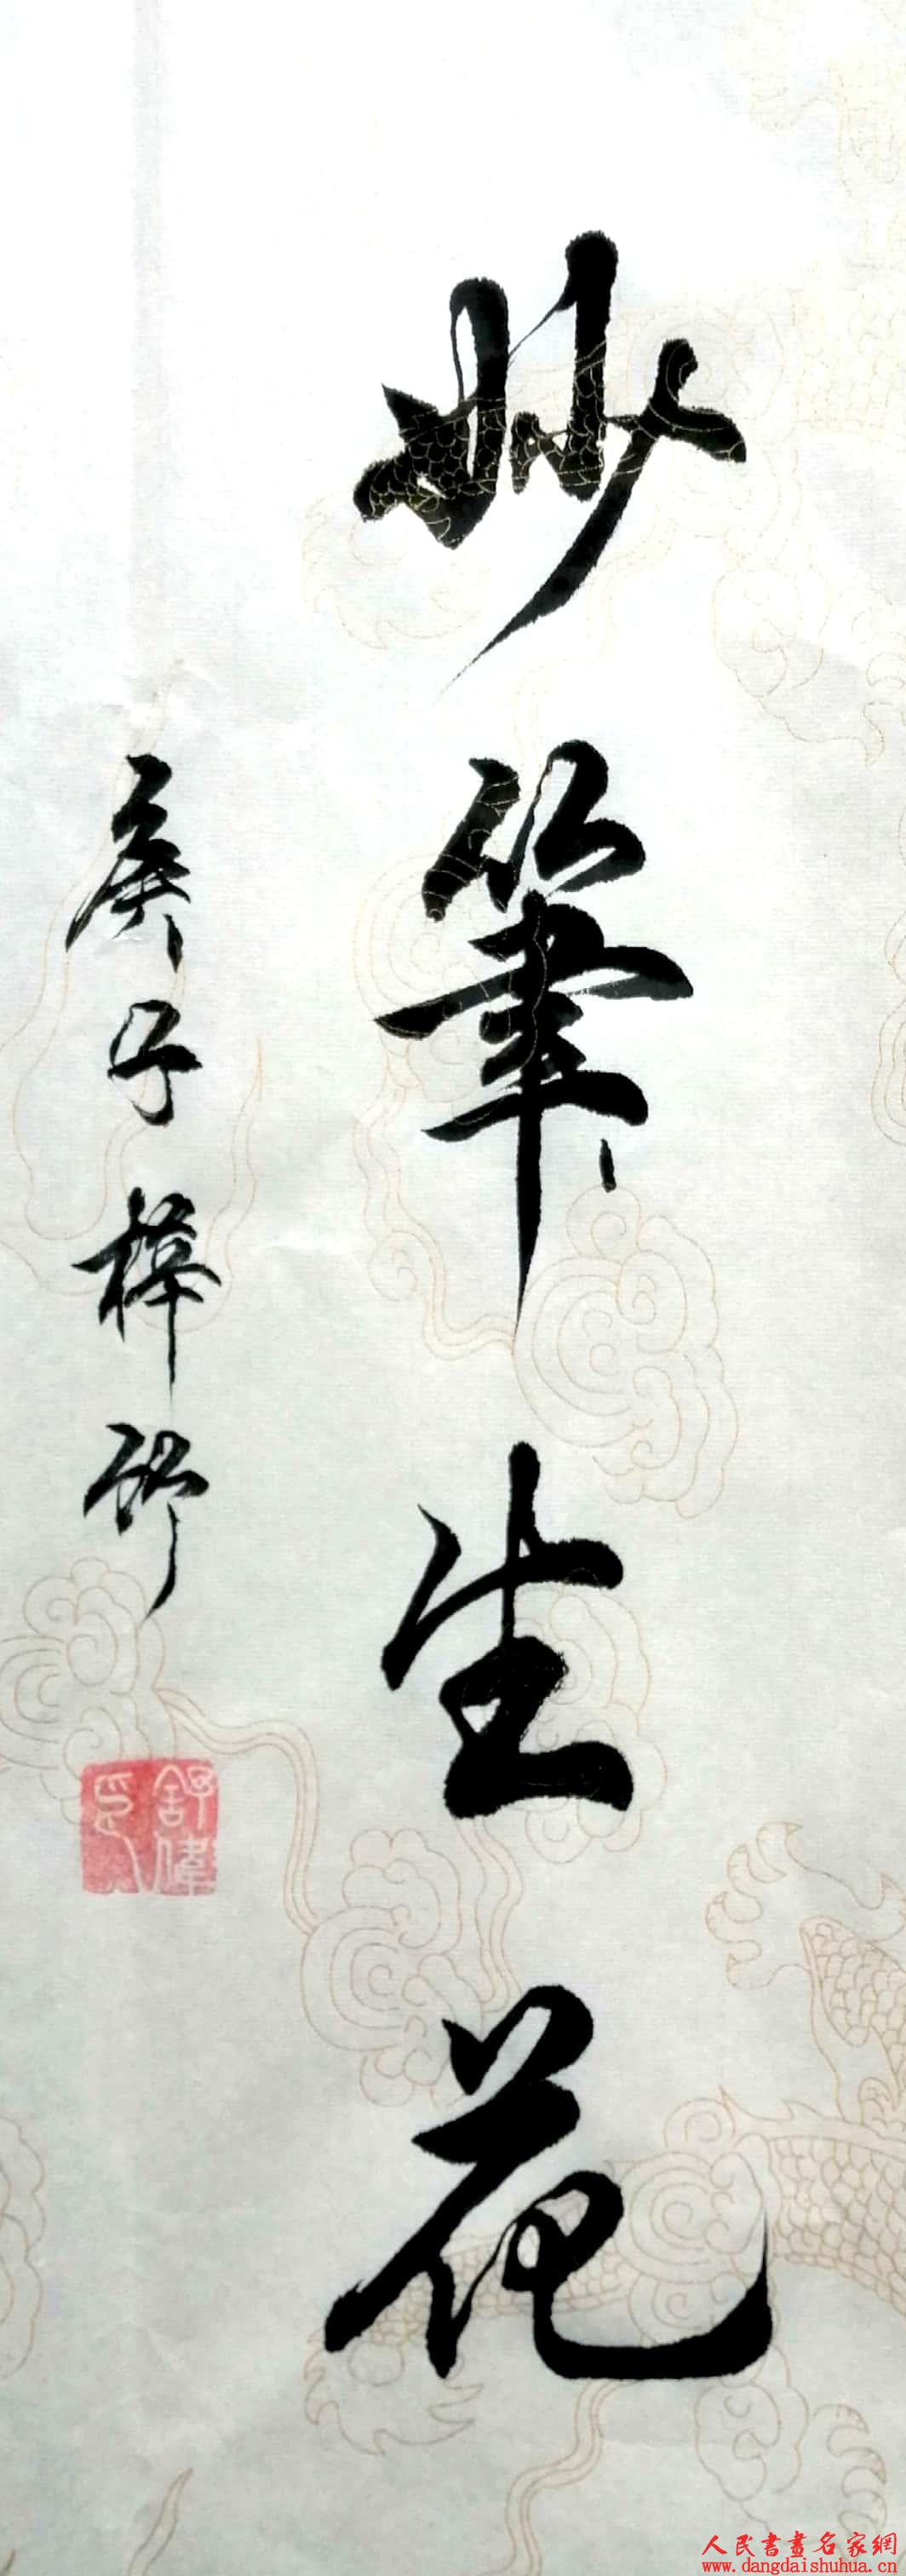 妙筆生花
庚子梓竹
舒偉印
人民書畫名家網
www.dangdaishuhua.cn